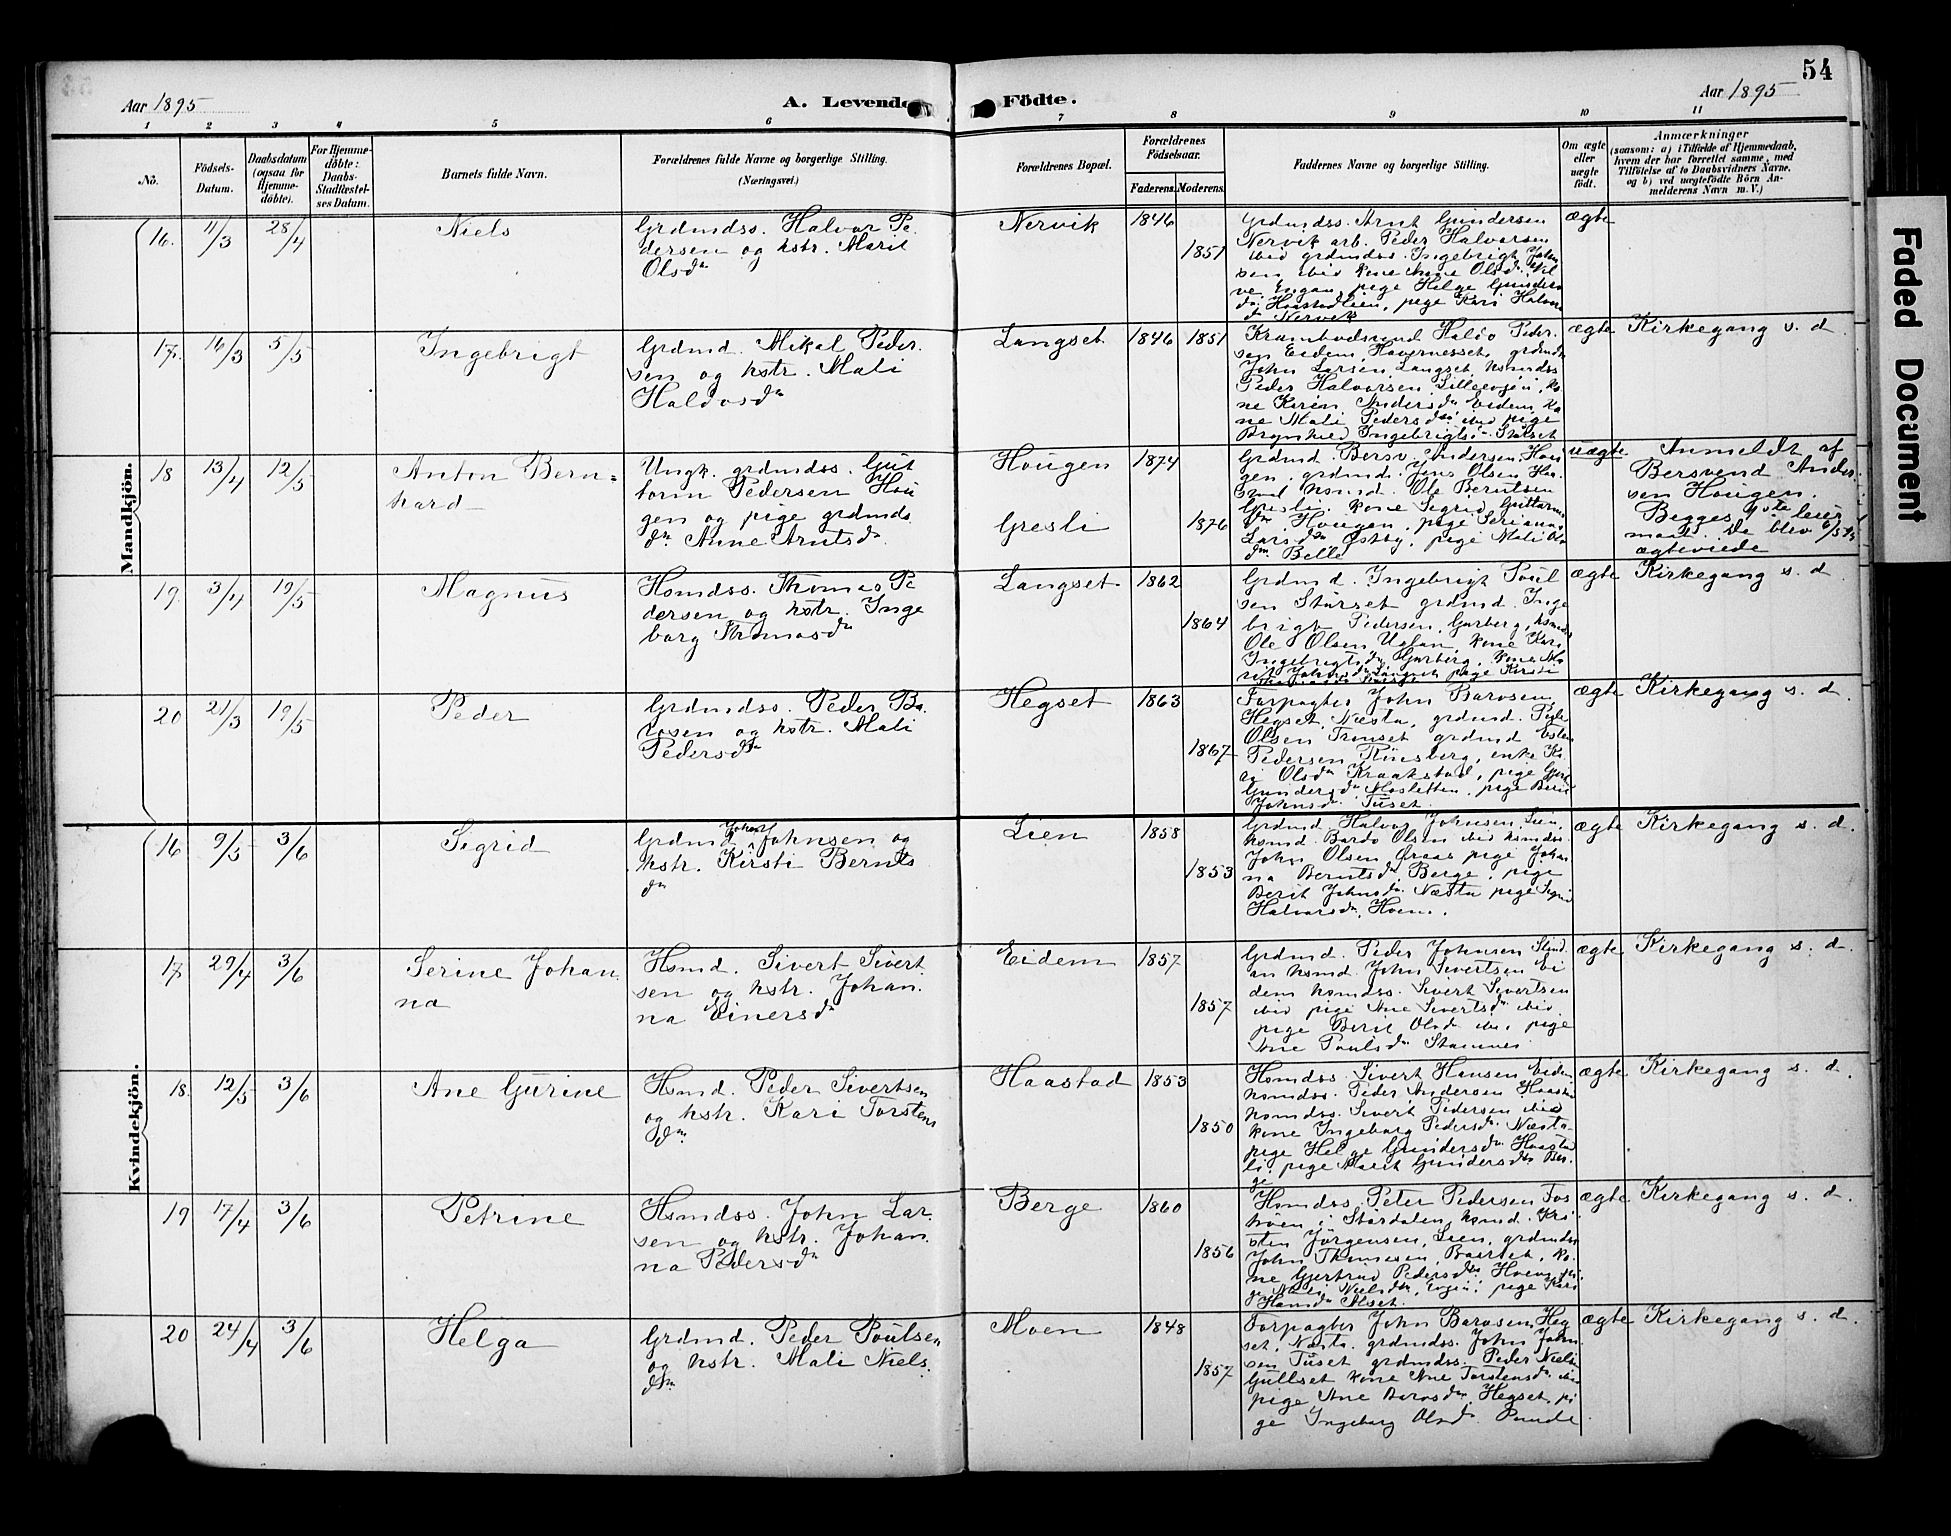 54
Aar 1895
A. Levende
Födte.
Aar 1895
1 2 3 4 5 6 7 8 9 10 11
No.
Födsels-
Datum.
Daabsdatum
(ogsaa for
Hjemme-
döbte).
For Hjemme-
döbte:
Daabs-
Stadfestel-
ses Datum.
Barnets fulde Navn.
Forældrenes fulde Navne og borgerlige Stilling.
(Næringsvei.)
Forældrenes Bopæl.
Forældrenes
Födselsaar.
Faderens. Moderens.
Faddernes Navne og borgerlige Stilling.
Om ægte
eller
uægte
födt.
Anmærkninger
(saasom: a) i Tilfælde af Hjemmedaab,
hvem der har forrettet samme, med
Tilföielse af to Daabsvidners Navne.
og b) ved uægtefödte Börn An-
melderens Navn m. V.)
Mandkjön.
16. 11/3 28/4
Niels
Grdmdss. Halvor Pe
dersen og hstr. Marit
Olsdr
Nervik
1846
1851
Grdmdss. Arnt Gundersen
Nervik arb. Peder Halvorsen
ibid grdmdss. Ingebrigt John
sen ibid kone Ane Olsdr
Engan, pige Helge Gunders
dr Haastadlien, pige Kari Halvors
dr Nervik
ægte
17. 16/3 5/5
Ingebrigt
Grdmd. Mikal Peder
sen og hstr. Mali
Haldosdr
Langset
1846 1851
Krambodsvend Haldo Peder
sen Eidem, Havernesset, grdmds
John Larsen Langset, hsmdss
Peder Halvorsen Lilleevjen, ko
ne Karen Andersdr Eidem, ko
ne Mali Pedersdr ibid pige
Brynhild Ingebrigtsdr Stølset
ægte
Kirkegang s. d
18 13/4 12/5
Anton Bern=
hard
Ungk. grdmdss. Gut
torm Pedersen Hou
gen og pige grdmds
dr Anne Arntsdr
Hougen
Gresli
1874
1876
Grdmd. Bersv. Andersen Hou
gen, grdmd. Jens Olsen
hsmd. Ole Berntsen
Gresli, kone Sigrid Guttorms
dr Hougen, pige Serianna
Larsdr Østby, pige Mali Ols
dr Belle
uægte
Anmeldt af
Bersvend Ander
sen Hougen.
Begges 1ste leier
maal. De blev 6/5 95
ægteviede
19. 3/4 19/5
Magnus
Hsmdss. Thomas Pe
dersen og hstr. Inge
borg Thomasdr
Langset
1862
1864
Grdmd. Ingebrigt Poul
sen Stùrset grdmd. Inge
brigt Pedersen, Garberg, hsmdss
Ole Olsen Uglan, kone Kari
Ingebrigtsdr Garberg, kone Ma
rit Johnsdr Langset pige Kirsti
ægte
Kirkegang s. d
20 21/3 19/5
Peder
Grdmdss. Peder Ba
rosen og hstr. Mali
Pedersdr
Hegset
1863
1867
Forpagter John Barosen
Hegset Næsta, grdmd. Peder
Olsen Trønset grdmd Esten
Pedersen Rønsberg, enke Ka
ri Olsdr Kraakstad, pige
Gundersdr Mosletten, pige Berit
Johnsdr Tuset.
ægte
Kirkegang s. d
Kvindekjön.
16 9/5 3/6
Sigrid
Grdmd John Johnsen og
hstr. Kirsti Bernts
dr
Lien
1858
1853
Grdmd. Halvor Johnsen Lien,
hsmd. Bardo Olsen ibid hsmdss.
John Olsen Øraas pige Johan
na Berntsdr Berge, pige
Berit Johnsdr Næsta pige Sigrid
Halvorsdr, Hoem.
ægte
Kirkegang s. d.
17 29/4 3/6
Serine Johan
na
Hsmd. Sivert Sivert
sen og hstr. Johan.
na Einersdr
Eidem
1857
1857
Grdmd. Peder Johnsen Slind
an hsmd. John Sivertsen Ei
dem hsmdss. Sivert Sivertsen
ibid pige Ane Sivertsdr ibid,
pige Berit Olsdr ibid. pige
Ane Poulsdr Stamnes
ægte
Kirkegang s. d.
18. 12/5 3/6
Ane Gurine
Hsmd. Peder Sivertsen
og hstr. Kari Torstens
dr
Haastad
1853
1850
Hsmdss. Sivert Hansen Eidem
hsmdss. Peder Andersen Haastad
hsmdss. Sivert Pedersen ibid
kone Ingeborg Pedersdr Næsta
pige Helge Gundersdr Haastad
li, pige Marit Gundersdr Ber.
ge
ægte
Kirkegang s. d.
19 17/4 3/6
Petrine
Hsmdss. John Lar.
sen og hstr. Johan.
na Pedersdr
Berge
1860
1856
Hsmdss. Peter Pedersen Fos
moen i Størdalen, hsmd. Kri
sten Jørgensen, Lien, grdmdss
John Thomasen, Baarset, ko.
ne Gjertrud Pedersdr Hoem, pi
ge Mali Nielsdr, Evjen, pige Kari
Hansdr Alset.
ægte
Kirkegang s. d.
20 24/4 3/6
Helga
Grdmd. Peder Poulsen
og hstr. Mali Niels.
dtr
Moen
1848
1857
Forpagter John Barosen Heg
set, Næsta. grdmdss. John John
sen Tuset grdmdss. Peder Niels
Gullset kone Ane Torstensdr ibid
pige Ane Barosdr, Hegset, pi
ge Ingeborg Olsdr. Rønde
ægte
Kirkegang s. d.
Faded Document